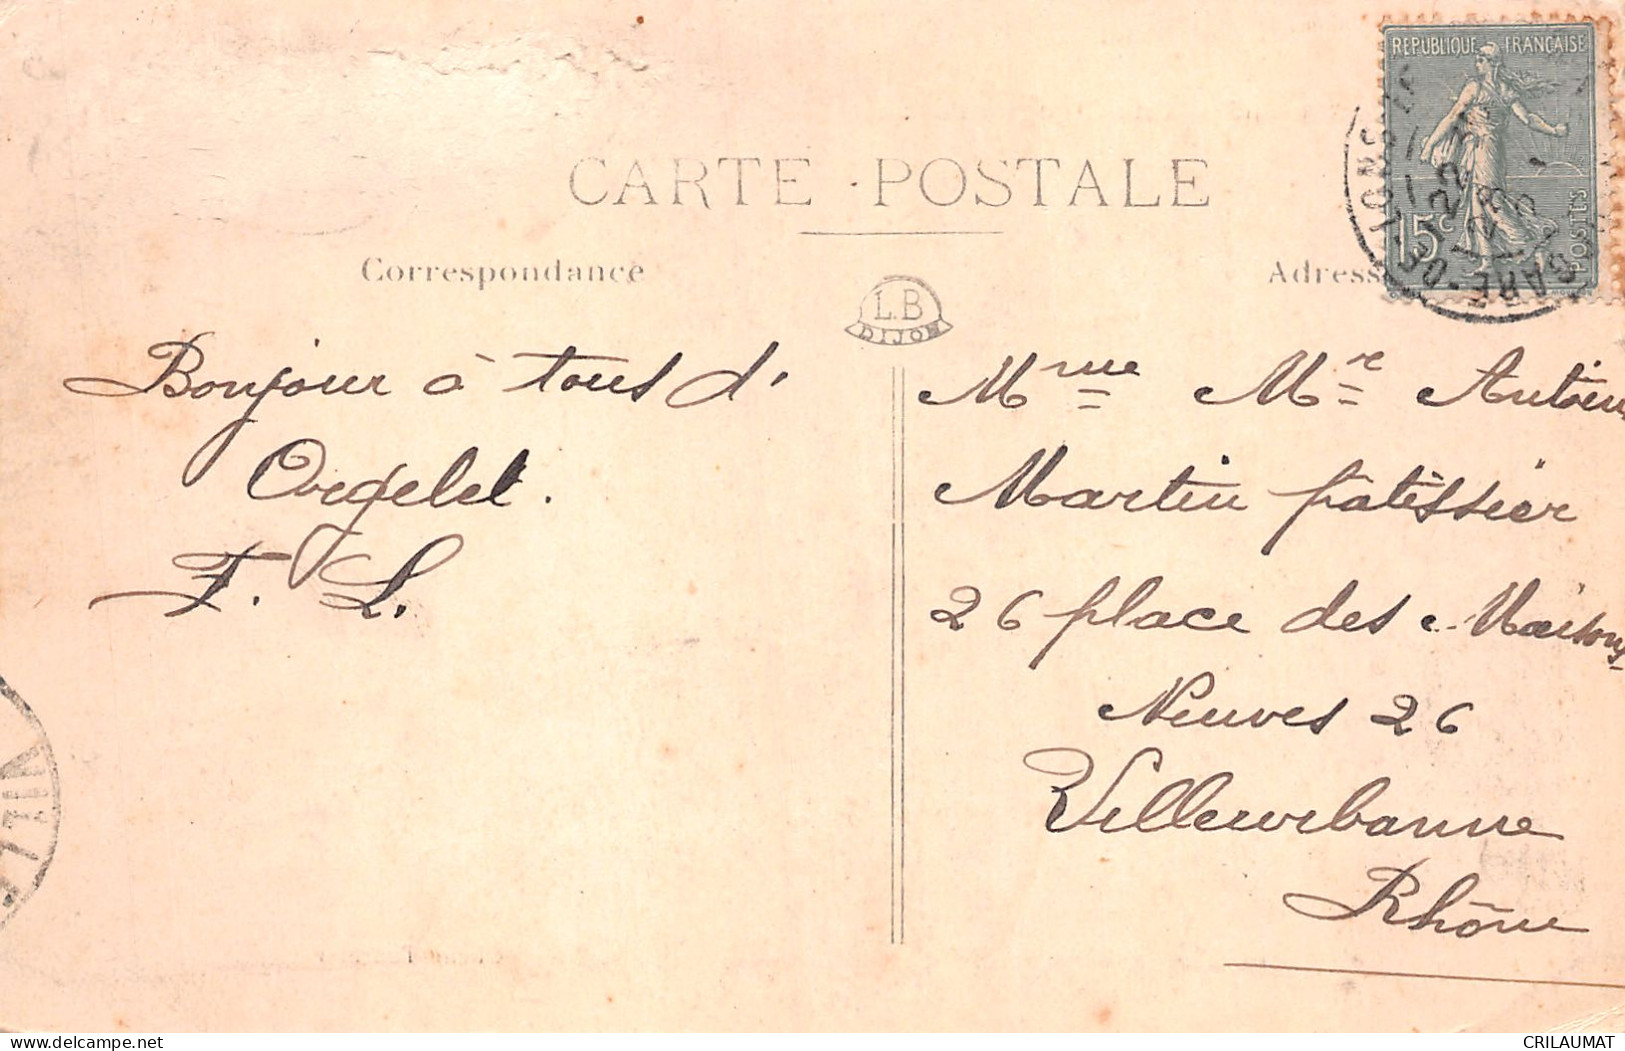 CARTE POSTALE
Correspondance
Adress
REPUBLIQUE FRANCAISE
15c
POSTES
GARE-DE-LONS
L.B
DIJON
Bonjour à tous d'
Orgelet.
F. L.
Mme Mr Antoin
Martin patissier
26 place des Maisons-
Neuves 26
Villeurbanne
Rhône
VILLE
delcampe.net
CRILAUMAT